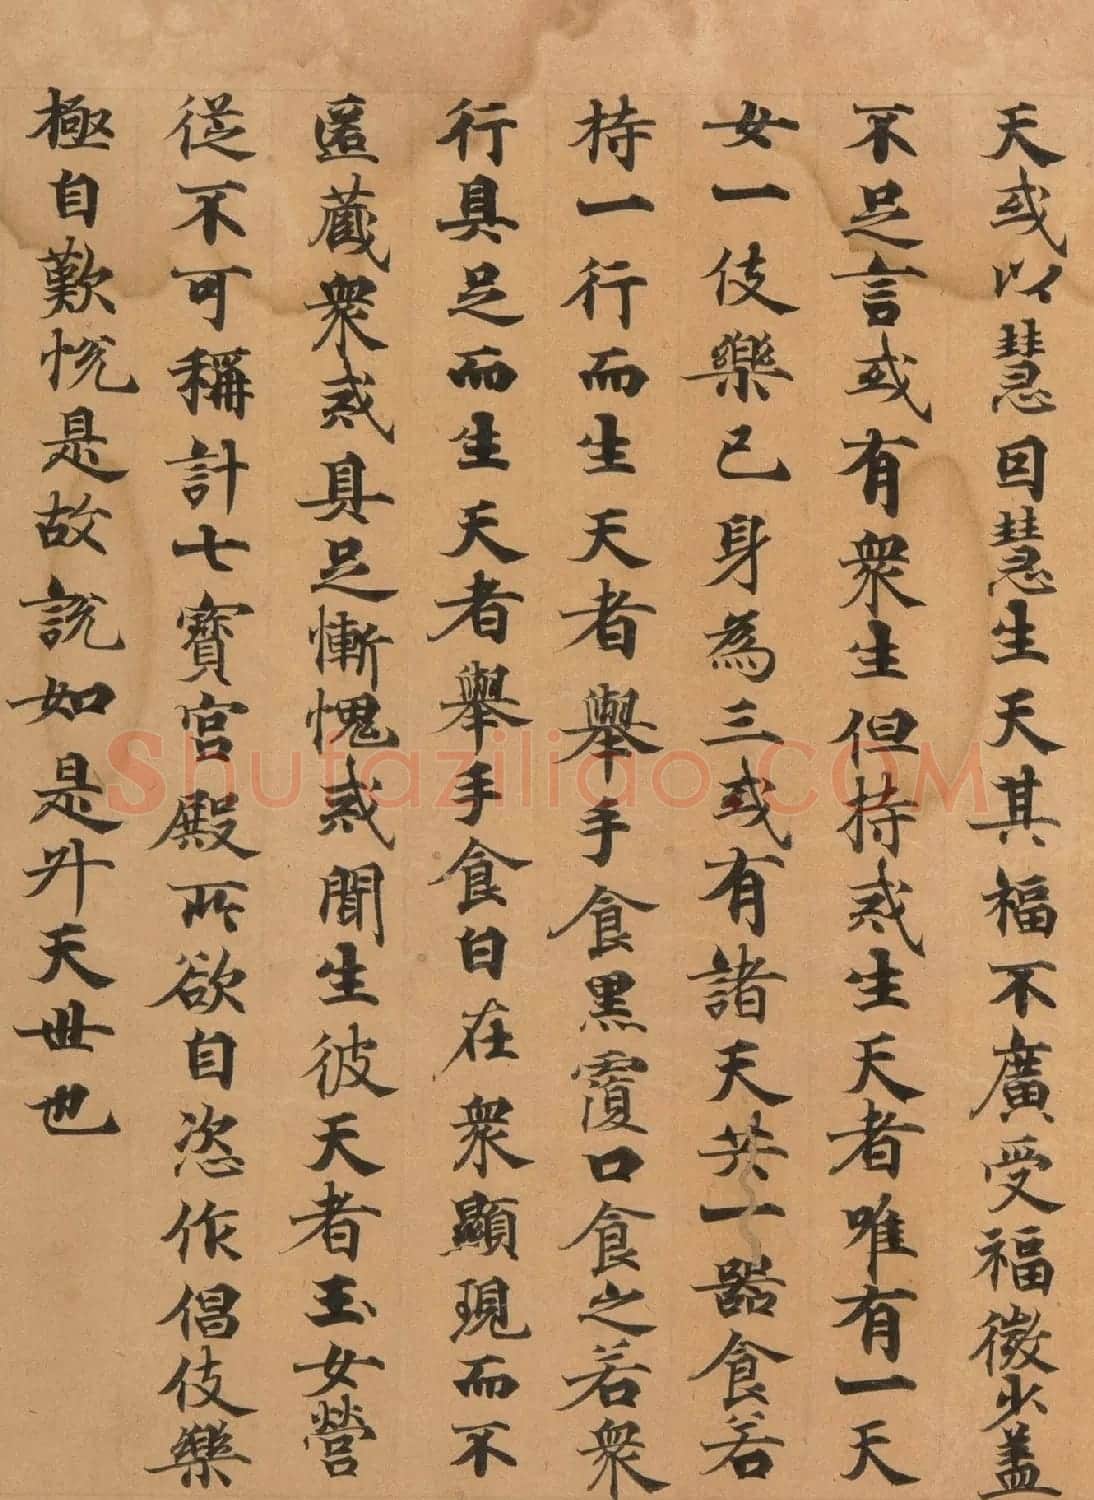 天或以慧回慧生天其福不廣受福微少蓋
不足言或有衆生但持戒生天者唯有一天
女一伎樂已身為三或有諸天共一器食若
持一行而生天者舉手食黑覆口食之若衆
行具足而生天者舉手食白在衆顯現而不
匿藏衆戒具足慚愧戒聞生彼天者玉女營
從不可稱計七寶宮殿所欲自恣作倡伎樂
極自歎悅是故說如是升天世也
Shufaziliao.COM